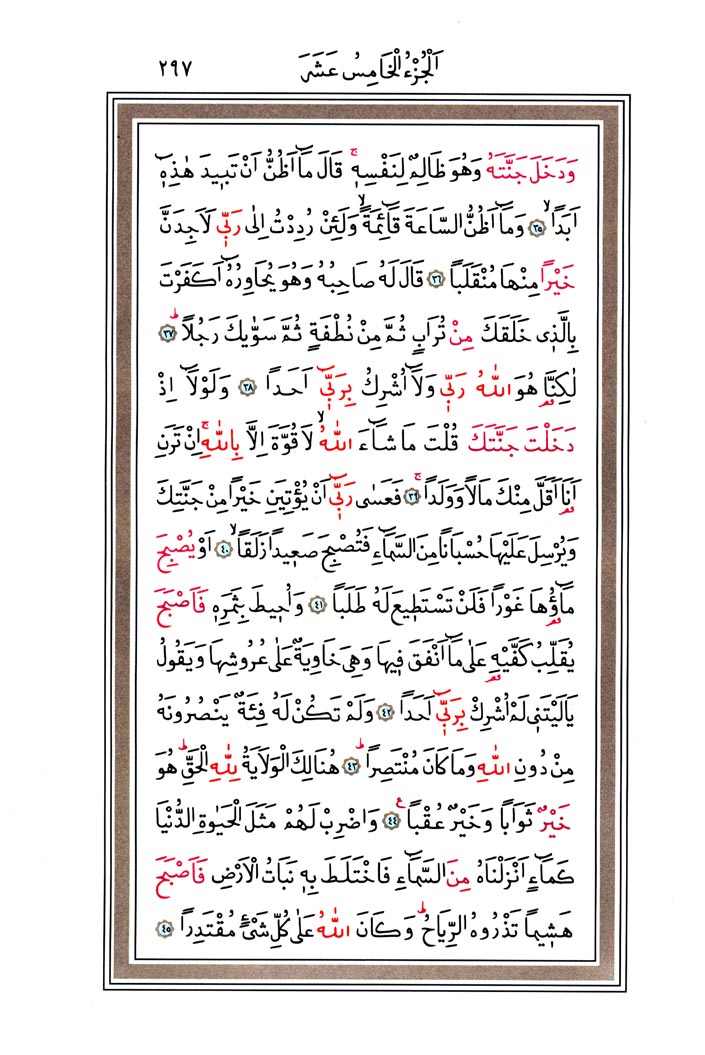 اَلْجُزْءُ الْخَامِسُ عَشَرَ ٢٩٧
وَدَخَلَ جَنَّتَهُ وَهُوَ ظَالِمٌ لِنَفْسِه۪ۚ قَالَ مَٓا اَظُنُّ اَنْ تَب۪يدَ هٰذِه۪ٓ
اَبَداًۙ ٣٥ وَمَٓا اَظُنُّ السَّاعَةَ قَٓائِمَةًۙ وَلَئِنْ رُدِدْتُ اِلٰى رَبّ۪ي لَاَجِدَنَّ
خَيْراً مِنْهَا مُنْقَلَباً ٣٦ قَالَ لَهُ صَاحِبُهُ وَهُوَ يُحَاوِرُهُٓ اَكَفَرْتَ
بِالَّذ۪ي خَلَقَكَ مِنْ تُرَابٍ ثُمَّ مِنْ نُطْفَةٍ ثُمَّ سَوّٰيكَ رَجُلاًۜ ٣٧
لٰكِنَّا۬ هُوَ اللّٰهُ رَبّ۪ي وَلَٓا اُشْرِكُ بِرَبّ۪ٓي اَحَداً ٣٨ وَلَوْلَٓا اِذْ
دَخَلْتَ جَنَّتَكَ قُلْتَ مَا شَٓاءَ اللّٰهُۙ لَا قُوَّةَ اِلَّا بِاللّٰهِۚ اِنْ تَرَنِ
اَنَا۬ اَقَلَّ مِنْكَ مَالاً وَوَلَداًۚ ٣٩ فَعَسٰى رَبّ۪ٓي اَنْ يُؤْتِيَنِ خَيْراً مِنْ جَنَّتِكَ
وَيُرْسِلَ عَلَيْهَا حُسْبَاناً مِنَ السَّمَٓاءِ فَتُصْبِحَ صَع۪يداً زَلَقاًۙ ٤٠ اَوْ يُصْبِحَ
مَٓاؤُ۬هَا غَوْراً فَلَنْ تَسْتَط۪يعَ لَهُ طَلَباً ٤١ وَاُح۪يطَ بِثَمَرِه۪ فَاَصْبَحَ
يُقَلِّبُ كَفَّيْهِ عَلٰى مَٓا اَنْفَقَ ف۪يهَا وَهِيَ خَاوِيَةٌ عَلٰى عُرُوشِهَا وَيَقُولُ
يَا لَيْتَن۪ي لَمْ اُشْرِكْ بِرَبّ۪ٓي اَحَداً ٤٢ وَلَمْ تَكُنْ لَهُ فِئَةٌ يَنْصُرُونَهُ
مِنْ دُونِ اللّٰهِ وَمَا كَانَ مُنْتَصِراًۜ ٤٣ هُنَالِكَ الْوَلَايَةُ لِلّٰهِ الْحَقِّۜ هُوَ
خَيْرٌ ثَوَاباً وَخَيْرٌ عُقْباً۟ ٤٤ وَاضْرِبْ لَهُمْ مَثَلَ الْحَيٰوةِ الدُّنْيَا
كَمَٓاءٍ اَنْزَلْنَاهُ مِنَ السَّمَٓاءِ فَاخْتَلَطَ بِه۪ نَبَاتُ الْاَرْضِ فَاَصْبَحَ
هَش۪يماً تَذْرُوهُ الرِّيَاحُۜ وَكَانَ اللّٰهُ عَلٰى كُلِّ شَيْءٍ مُقْتَدِراً ٤٥